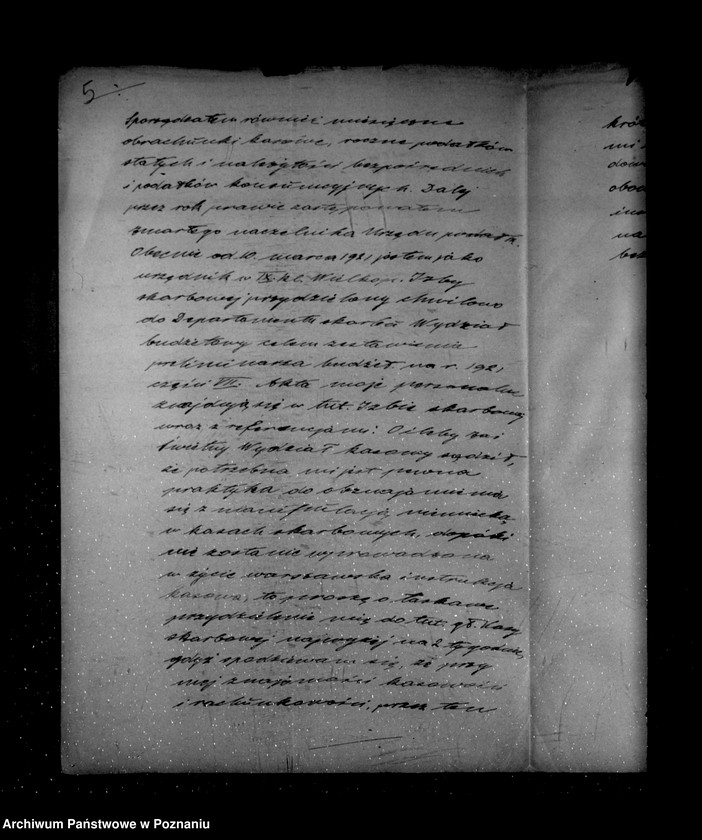 5 ./.
sporządzałem również miesięczne
obrachunki kasowe, roczne podatków
stałych i należytości bezpośrednich
i podatków konsumcyjnych. Dalej
przez rok prawie zastępowałem
zmarłego naczelnika Urzędu podatk.
Obecnie od 10. marca 1921 jestem jako
urzędnik w IX kl. Wielkop. Izby
skarbowej przydzielony chwilowo
do Departamentu skarbu Wydział
budżetowy celem zestawienia
preliminarza budżet. na r. 1921
część VIII. Akta moje personalne
znajdują się w tut. Izbie skarbowej
wraz z referencjami. Oileby zaś
Świetny Wydział kasowy sądził,
że potrzebna mi jest pewna
praktyka do obznajmienia
się z manipulacją niemiecką
w kasach skarbowych, dopóki
nie zostanie wyprowadzona
w życie warszawska instrukcja
kasowa, to proszę o łaskawe
przydzielenie mię do tut. gł. Kasy
skarbowej najwyżej na 2 tygodnie,
gdyż spodziewam się, że przy
mej znajomości kasowości
i rachunkowości, przez ten
król
mi
obo
na
Archiwum Państwowe w Poznaniu